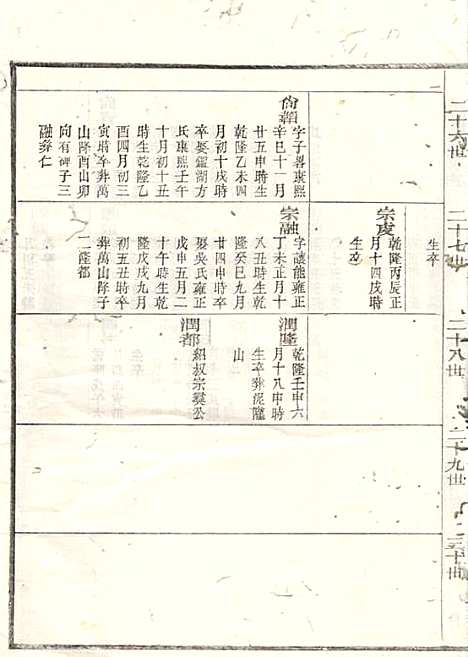 二十六世
二十七世
二十八世
二十九世
三十世
尚穎
字子畧康熙
辛巳十一月
廿五申時生
乾隆乙未四
月初十戌時
卒娶鑑湖方
氏康熙壬午
十月初十丑
時生乾隆乙
酉四月初三
寅時卒葬萬
山降酉山卯
向有碑子三
融
仁
生卒
宗虔
乾隆丙辰正
月十四戌時
生卒
宗融
字讓能雍正
丁未正月十
八丑時生乾
隆癸巳九月
廿四申時卒
娶吳氏雍正
戊申五月二
隆戌戌九月
初五丑時卒
葬萬山降子
二隆都
潤隆
乾隆壬申六
月十八申時
生卒葬促隴
山
潤都
紹叔宗奬公